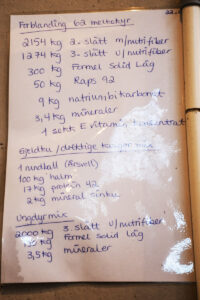 Forblanding 62 melkekyr
2154 kg 2. slått m/nutrifiber
1274 kg 3. slått u/nutrifiber
300 kg Formel Solid Låg
50 kg Raps 42
9 kg natriumbikarbonat
3,4 kg mineraler
1 sekk E vitamin konsentrat
Gjeldku / drektige
1 rundball (årsvell)
100 kg halm
17 kg protein 42
2 kg mineral sinku
Ungdyrmix
2000 kg 3. slått u/nutrifiber
kg Formel Solid Låg
3,5 kg mineraler